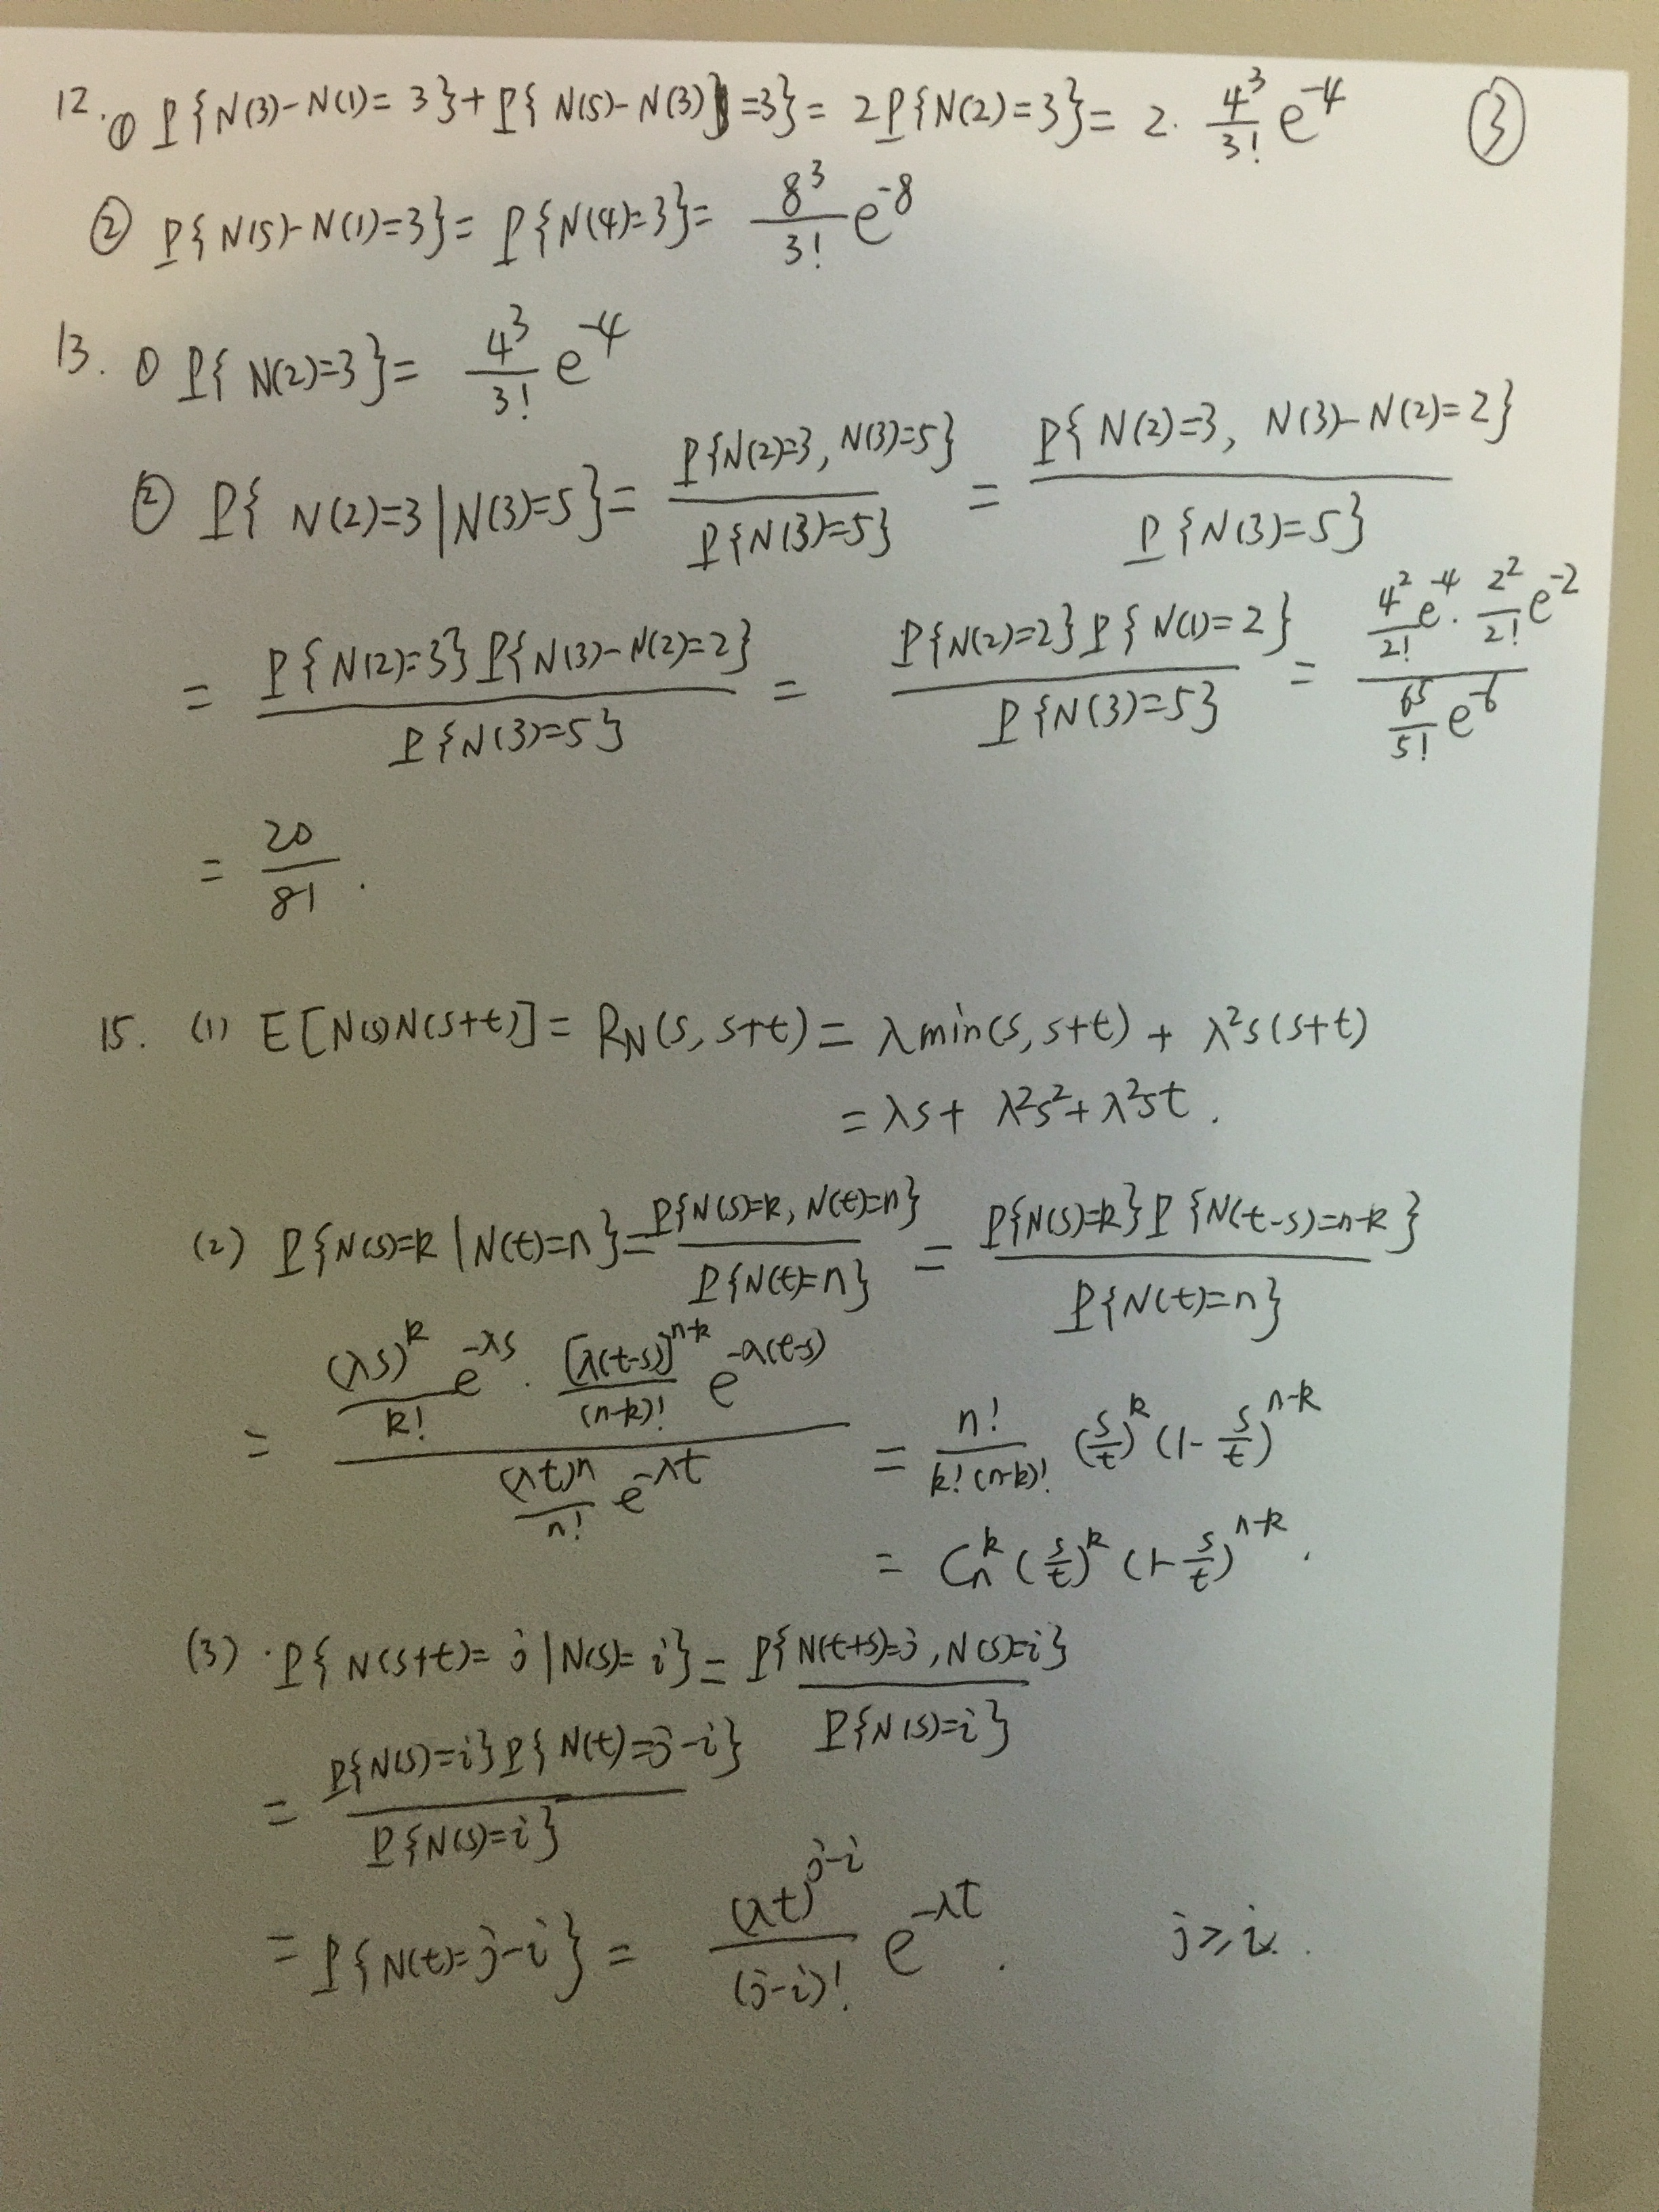 12. ① P{N(3)-N(1)=3}+P{N(5)-N(3)=3}=2P{N(2)=3}=2·4³/3! e⁻⁴ ③
② P{N(5)-N(1)=3}=P{N(4)=3}=8³/3! e⁻⁸
13. ① P{N(2)=3}=4³/3! e⁻⁴
② P{N(2)=3|N(3)=5}=P{N(2)=3, N(3)=5}/P{N(3)=5}=P{N(2)=3, N(3)-N(2)=2}/P{N(3)=5}
=P{N(2)=3}P{N(3)-N(2)=2}/P{N(3)=5}=P{N(2)=2}P{N(1)=2}/P{N(3)=5}=(4²/2! e⁻⁴·2²/2! e⁻²)/(6⁵/5! e⁻⁶)
=20/81.
15. (1) E[N(s)N(s+t)]=R_N(s,s+t)=λmin(s,s+t)+λ²s(s+t)
=λs+λ²s²+λ²st.
(2) P{N(s)=k|N(t)=n}=P{N(s)=k, N(t)=n}/P{N(t)=n}=P{N(s)=k}P{N(t-s)=n-k}/P{N(t)=n}
=((λs)^k/k! e^(-λs)·[λ(t-s)]^(n-k)/(n-k)! e^(-λ(t-s)))/((λt)^n/n! e^(-λt))=n!/(k!(n-k)!) (s/t)^k (1-s/t)^(n-k)
=C_n^k (s/t)^k (1-s/t)^(n-k).
(3) ·P{N(s+t)=j|N(s)=i}=P{N(t+s)=j, N(s)=i}/P{N(s)=i}
=P{N(s)=i}P{N(t)=j-i}/P{N(s)=i}
=P{N(t)=j-i}=(λt)^(j-i)/(j-i)! e^(-λt). j≥i.